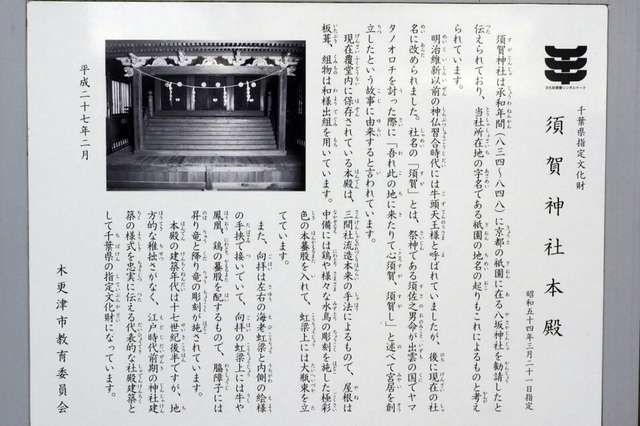 千葉県指定文化財
須賀神社本殿
昭和五十四年三月二十一日指定
須賀神社は承和年間(八三四~八四八)に京都の祇園に在る八坂神社を勧請したと
伝えられており、当社所在地の字名である祇園の地名の起りもこれによるものと考え
られています。
明治維新以前の神仏習合時代には牛頭天王様と呼ばれていましたが、後に現在の社
名に改められました。社名の「須賀」とは、祭神である須佐之男命が出雲の国でヤマ
タノオロチを討った際に「吾れ此の地に来たりて心須賀、須賀し」と述べて宮居を創
立したという故事に由来すると言われています。
現在覆堂内に保存されている本殿は、三間社流造本来の手法によるもので、屋根は
板葺、組物は和様出組を用いています。中備には鶏や様々な水鳥の彫刻を施した極彩
色の本蟇股を入れて、虹梁上には大瓶束を立
てています。
また、向拝は左右の海老虹梁と内側の絵様
の手挟で接いていて、向拝の虹梁上には牛や
鳳凰、鶏の蟇股を配するもので、脇障子には
昇り竜と降り竜の彫刻が施されています。
本殿の建築年代は十七世紀後半ですが、地
方的な稚拙さがなく、江戸時代前期の神社建
築の様式を忠実に伝える代表的な社殿建築と
して千葉県の指定文化財になっています。
平成二十七年二月
木更津市教育委員会